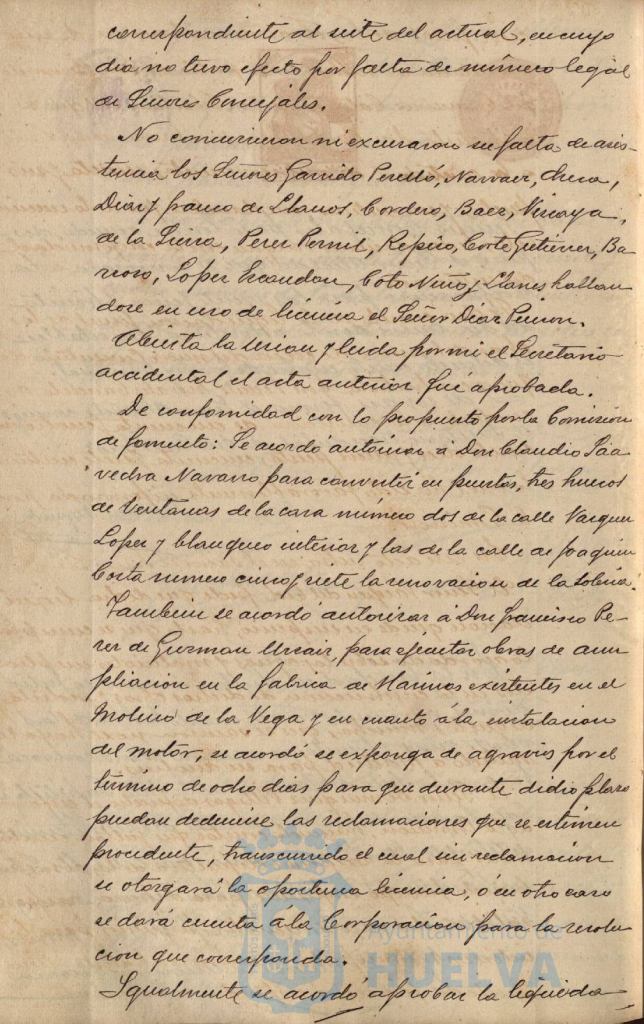 correspondiente al siete del actual, en cuyo
dia no tuvo efecto por falta de número legal
de Señores Concejales.
No concurrieron ni excusaron su falta de asis-
tencia los Señores Garrido Perelló, Narvaez, Checa,
Diaz y franco de Llanos, Cordero, Baez, Vizcaya,
de la Sierra, Perez Pernil, Repiso, Corte Gutierrez, Ba-
rroso, Lopez Escandon, Coto Niño y Llanes hallan
dose en uso de licencia el Señor Diaz Pinzon.
Abierta la sesion y leida por mi el Secretario
accidental el acta anterior fué aprobada.
De conformidad con lo propuesto por la Comision
de fomento: Se acordó autorizar á Don Claudio Saa
vedra Navarro para convertir en puertas, tres huecos
de ventanas de la casa número dos de la calle Vazquez
Lopez y blanqueo interior y las de la calle de Joaquin
Costa numero cinco y siete la renovacion de la solería.
Tambien se acordó autorizar á Don francisco Pe-
rez de Guzman Urzaiz, para ejecutar obras de am
pliacion en la fabrica de Harinas existentes en el
Molino de la Vega y en cuanto á la instalacion
del motor, se acordó se exponga de agravios por el
término de ocho dias para que durante dicho plazo
puedan deducirse las reclamaciones que se estimen
procedente, transcurrido el cual sin reclamacion
se otorgará la oportuna licencia, ó en otro caso
se dará cuenta á la Corporacion para la resolu-
cion que corresponda.
Igualmente se acordó aprobar la liquida-
Ayuntamiento de
HUELVA